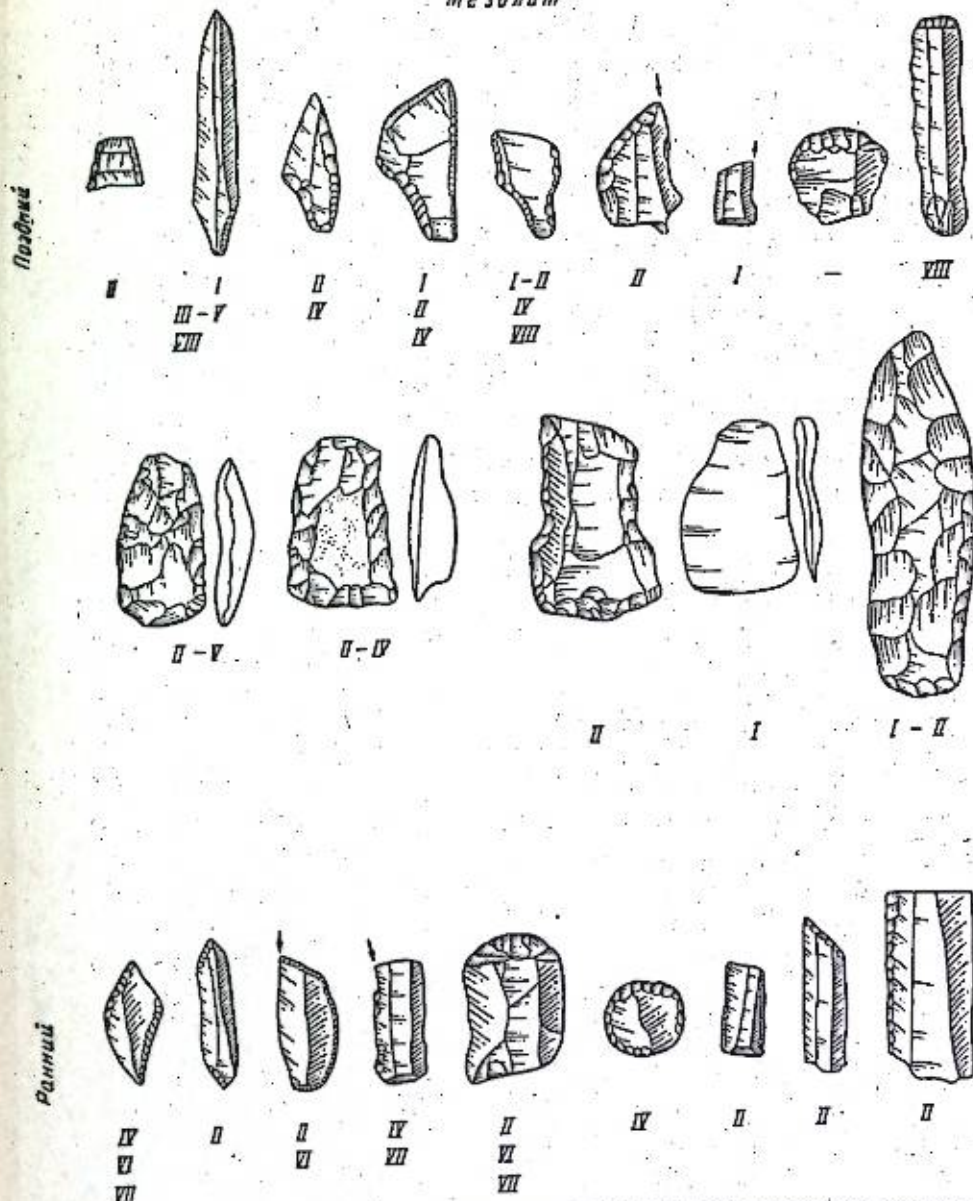 мезолит
Поздний
II I II I I-II II I — VIII
III-V IV II IV
VIII IV VIII
II-V II-IV
II I I-II
Ранний
IV II II IV II IV II II II
VI VI VII VI
VII VII